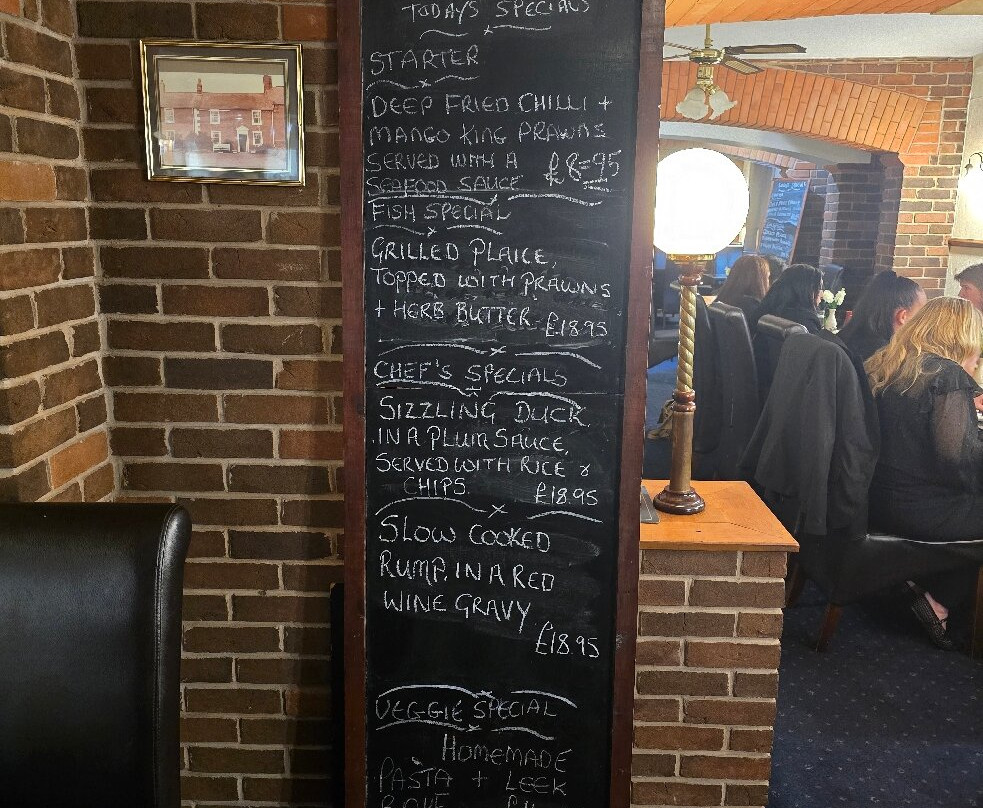 TODAYS SPECIALS
STARTER
DEEP FRIED CHILLI +
MANGO KING PRAWNS
SERVED WITH A £8=95
SEAFOOD SAUCE
FISH SPECIAL
GRILLED PLAICE,
TOPPED WITH PRAWNS
+ HERB BUTTER. £18.95
CHEF'S SPECIALS
SIZZLING DUCK,
IN A PLUM SAUCE,
SERVED WITH RICE &
CHIPS. £18.95
SLOW COOKED
RUMP. IN A RED
WINE GRAVY
£18.95
VEGGIE SPECIAL
HOMEMADE
PASTA + LEEK